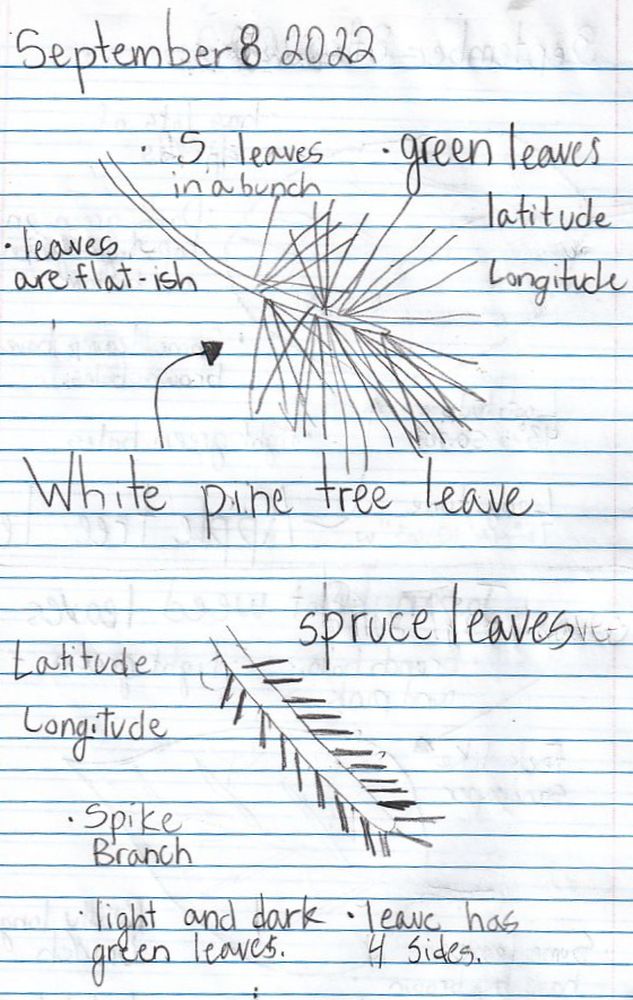 September 8 2022
· 5 leaves
in a bunch
· green leaves
latitude
Longitude
· leaves
are flat-ish
White pine tree leave
spruce leaves
Latitude
Longitude
· Spike
Branch
· light and dark
green leaves.
· leave has
4 sides.